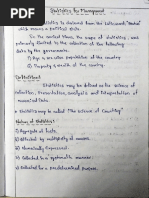 Statistics for Management
Statistics is derived from the Latin word "Status"
which means a political state.
In the ancient times, the scope of statistics was
primarily limited to the collection of the following
data by the governments.
1) Age & sex wise population of the country
2) Property & wealth of the country.
Definition:
Statistics may be defined as the science of
collection, Presentation, analysis and interpretation of
numerical data.
Statistics may be called "The science of Counting"
Nature of Statistics:
1) Aggregate of facts.
2) Affected by multiplicity of causes.
3) Numerically expressed.
4) Collected in a systematic manner.
5) Collected for a predetermined purpose.